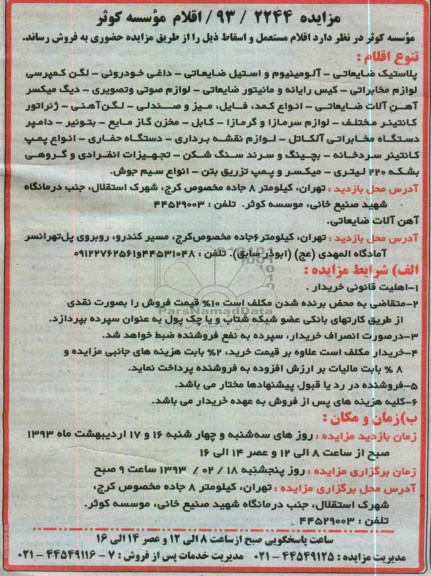 مزایده ۲۲۴۴ /۹۳/ اقلام مؤسسه کوثر
مؤسسه کوثر در نظر دارد اقلام مستعمل و اسقاط ذیل را از طریق مزایده حضوری به فروش رساند.
تنوع اقلام :
پلاستیک ضایعاتی - آلومینیوم و استیل ضایعاتی - داغی خودرونی - لگن کمپرسی
لوازم مخابراتی - کیس رایانه و مانیتور ضایعاتی - لوازم صوتی وتصویری - دیگ میکسر
آهن آلات ضایعاتی - انواع کمد، فایل، میز و صندلی - لگن آهنی - ژنراتور
کانتینر مختلف - لوازم سرمازا و گرمازا - کابل - مخزن گاز مایع - بتونیر - دامپر
دستگاه مخابراتی آلکاتل - لوازم نقشه برداری - دستگاه حفاری - انواع پمپ
کانتینر سردخانه - بچینگ و سرند سنگ شکن - تجهیزات انفرادی و گروهی
بشکه ۲۲۰ لیتری - میکسر و پمپ تزریق بتن - انواع سیم جوش.
آدرس محل بازدید : تهران، کیلومتر ۸ جاده مخصوص کرج، شهرک استقلال، جنب درمانگاه
شهید صنیع خانی، موسسه کوثر. تلفن : ۴۴۵۲۹۰۰۳
آهن آلات ضایعاتی.
آدرس محل بازدید : تهران، کیلومتر۶جاده مخصوص‌کرج، مسیر کندرو، روبروی پل‌تهرانسر
آمادگاه المهدی (عج) (ابوذر سابق). تلفن : ۴۴۵۳۱۰۴۸و۰۹۱۲۲۷۶۲۵۶۱
الف) شرایط مزایده :
۱-اهلیت قانونی خریدار .
۲-متقاضی به محض برنده شدن مکلف است ۱۰% قیمت فروش را بصورت نقدی
از طریق کارتهای بانکی عضو شبکه شتاب و یا چک پول به عنوان سپرده بپردازد.
۳-درصورت انصراف خریدار، سپرده به نفع فروشنده ضبط خواهد شد.
۴-خریدار مکلف است علاوه بر قیمت خرید، ۲% بابت هزینه های جانبی مزایده و
۸ % بابت مالیات بر ارزش افزوده به فروشنده پرداخت نماید.
۵-فروشنده در رد یا قبول پیشنهادها مختار می باشد.
۶-کلیه هزینه های پس از فروش به عهده خریدار می باشد.
ب)زمان و مکان :
زمان بازدید مزایده : روز های سه‌شنبه و چهار شنبه ۱۶ و ۱۷ اردیبهشت ماه ۱۳۹۳
صبح از ساعت ۸ الی ۱۲ و عصر ۱۴ الی ۱۶
زمان برگزاری مزایده : روز پنجشنبه ۱۸ / ۰۲ / ۱۳۹۳ ساعت ۹ صبح
آدرس محل برگزاری مزایده : تهران، کیلومتر ۸ جاده مخصوص کرج،
شهرک استقلال، جنب درمانگاه شهید صنیع خانی، موسسه کوثر.
تلفن : ۴۴۵۲۹۰۰۳ .
ساعت پاسخگویی صبح ازساعت ۸ الی ۱۲ و عصر ۱۴ الی ۱۶
مدیریت مزایده : ۴۴۵۴۹۱۲۵ - ۰۲۱ مدیریت خدمات پس از فروش : ۷ - ۴۴۵۴۹۱۱۶ - ۰۲۱
ParsNamadData